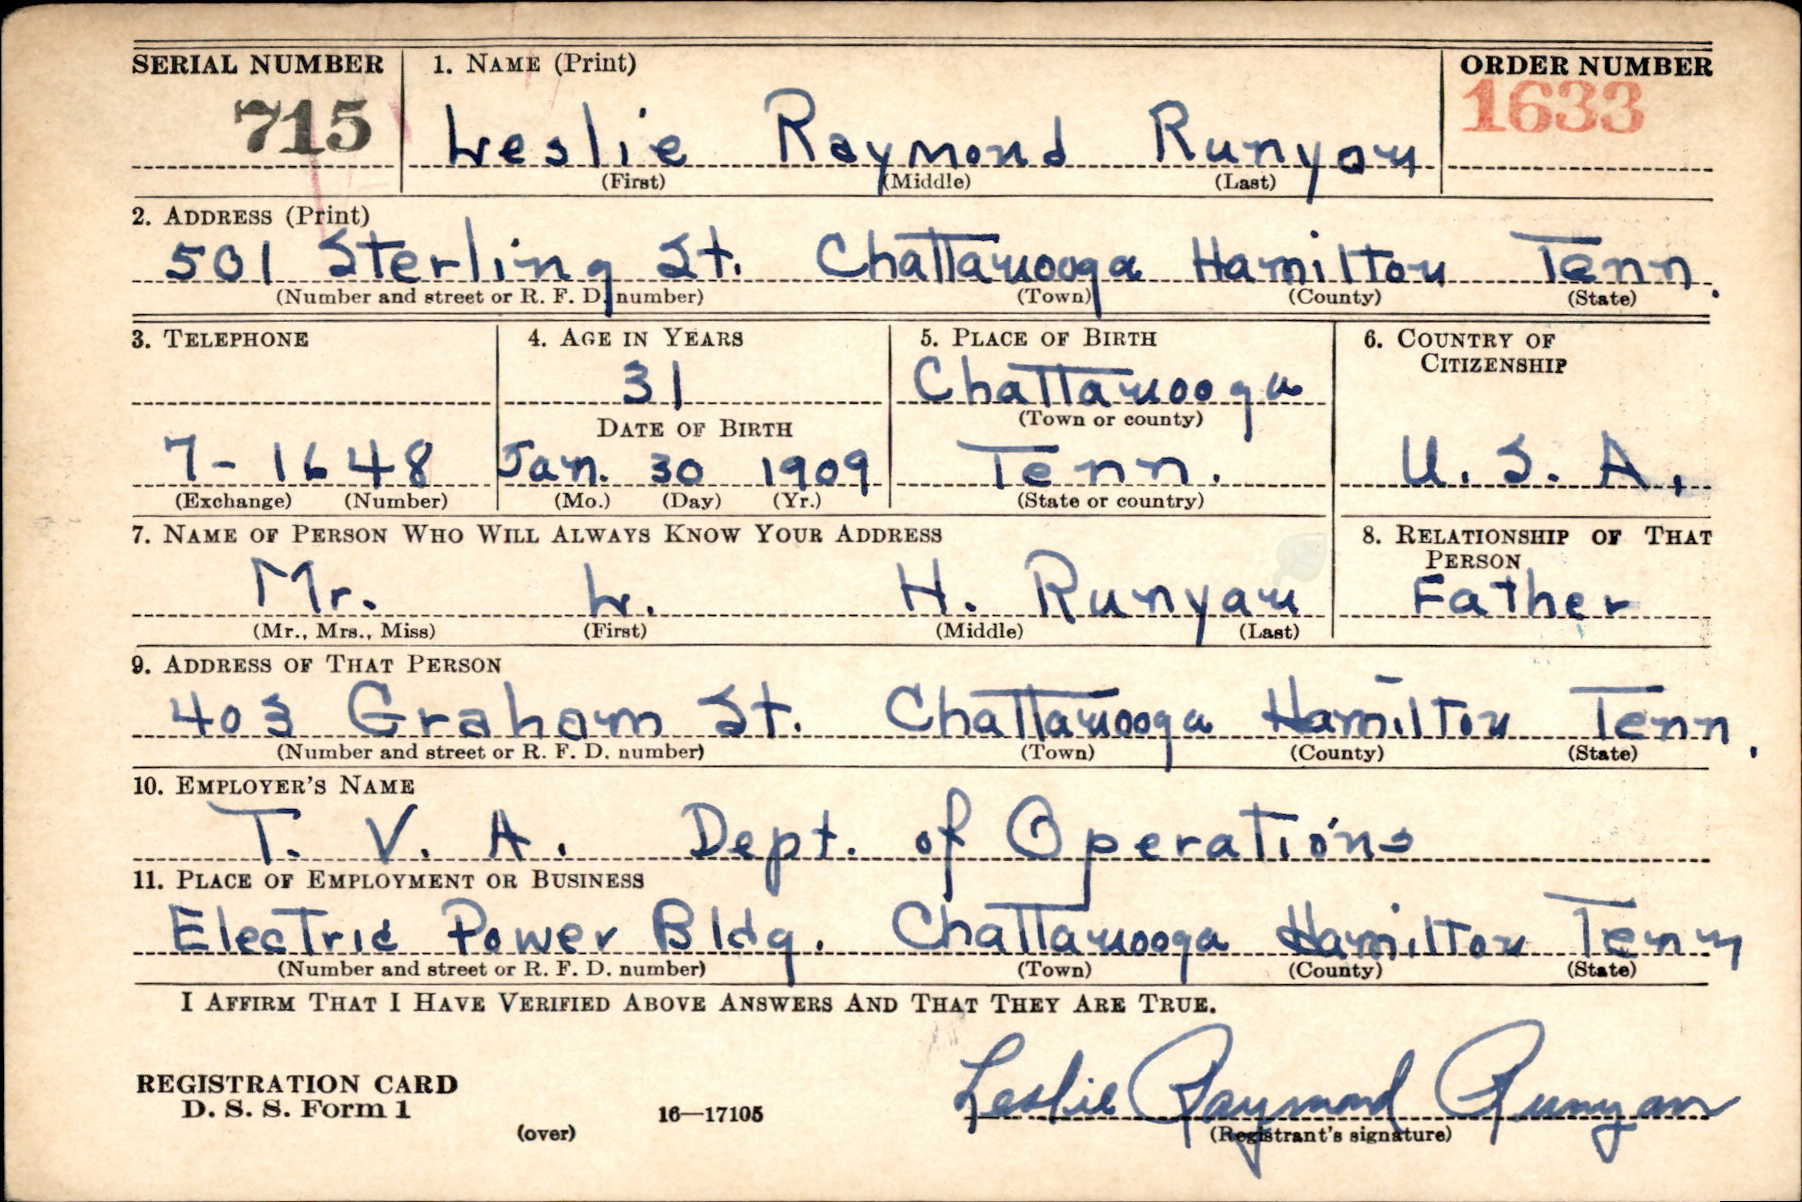 SERIAL NUMBER 1. NAME (Print) ORDER NUMBER
715 Leslie Raymond Runyan 1633
(First) (Middle) (Last)
2. ADDRESS (Print)
501 Sterling St. Chattanooga Hamilton Tenn.
(Number and street or R. F. D. number) (Town) (County) (State)
3. TELEPHONE 4. AGE IN YEARS 5. PLACE OF BIRTH 6. COUNTRY OF
CITIZENSHIP
31 Chattanooga
DATE OF BIRTH (Town or county)
7-1648 Jan. 30 1909 Tenn. U. S. A.
(Exchange) (Number) (Mo.) (Day) (Yr.) (State or country)
7. NAME OF PERSON WHO WILL ALWAYS KNOW YOUR ADDRESS 8. RELATIONSHIP OF THAT
PERSON
Mr. L. H. Runyan Father
(Mr., Mrs., Miss) (First) (Middle) (Last)
9. ADDRESS OF THAT PERSON
403 Graham St. Chattanooga Hamilton Tenn.
(Number and street or R. F. D. number) (Town) (County) (State)
10. EMPLOYER'S NAME
T. V. A. Dept. of Operations
11. PLACE OF EMPLOYMENT OR BUSINESS
Electric Power Bldg. Chattanooga Hamilton Tenn
(Number and street or R. F. D. number) (Town) (County) (State)
I AFFIRM THAT I HAVE VERIFIED ABOVE ANSWERS AND THAT THEY ARE TRUE.
REGISTRATION CARD
D. S. S. Form 1 16—17105 Leslie Raymond Runyan
(over) (Registrant's signature)